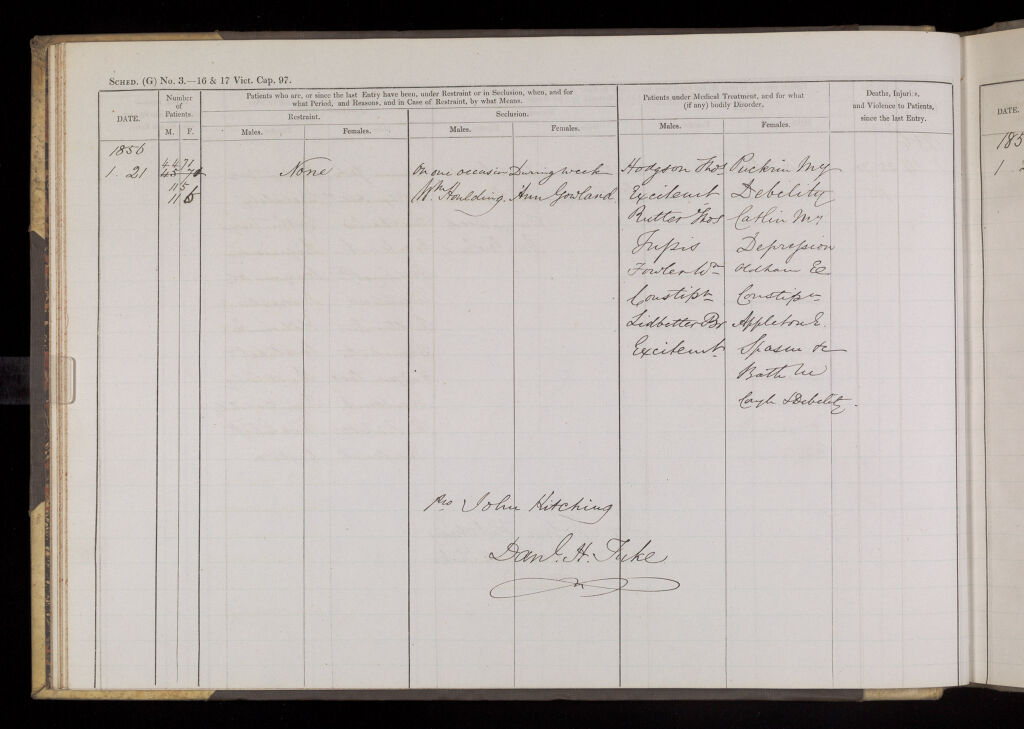 SCHED. (G) No. 3.—16 & 17 Vict. Cap. 97.
DATE.
Number of Patients.
M. F.
Patients who are, or since the last Entry have been, under Restraint or in Seclusion, when, and for
what Period, and Reasons, and in Case of Restraint, by what Means.
Restraint.
Males. Females.
Seclusion.
Males. Females.
Patients under Medical Treatment, and for what
(if any) bodily Disorder.
Males. Females.
Deaths, Injuries,
and Violence to Patients,
since the last Entry.
1856
44 71
1 . 21 45 None On one occasion During week Hodgson Thos Puckrin My
115
Wm Houlding. Ann Gowland Excitemt Debility
116
Rutter Thos Catlin My
Depression
Fowler Wm Oldham E
Constipn Constipn
Lidbetter Br Appleton E.
Excitemt Spasm &c
Bath M
Cough & Debility.
Pro John Hitching
Danl. H. Tuke
DATE.
185
1